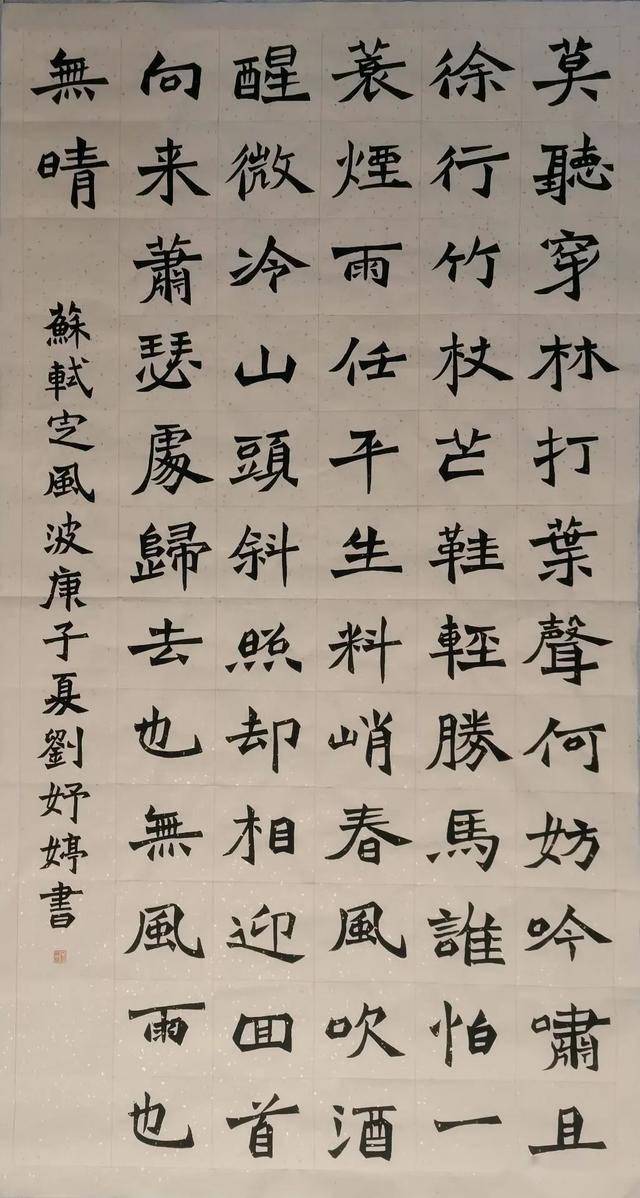 莫聽穿林打葉聲何妨吟嘯且
徐行竹杖芒鞋輕勝馬誰怕一
蓑煙雨任平生料峭春風吹酒
醒微冷山頭斜照却相迎回首
向来蕭瑟處歸去也無風雨也
無晴
蘇軾定風波庚子夏劉妤婷書